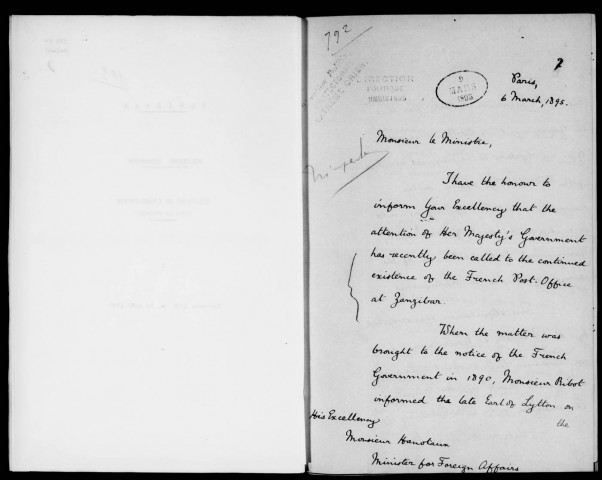 792
2
DIRECTION
POLITIQUE
9
MARS
1895
Paris,
6 March, 1895.
Monsieur le Ministre,
I have the honour to
inform Your Excellency that the
attention of Her Majesty's Government
has recently been called to the continued
existence of the French Post-Office
at Zanzibar.
When the matter was
brought to the notice of the French
Government in 1890, Monsieur Ribot
informed the late Earl of Lytton on
the
His Excellency
Monsieur Hanotaux
Minister for Foreign Affairs